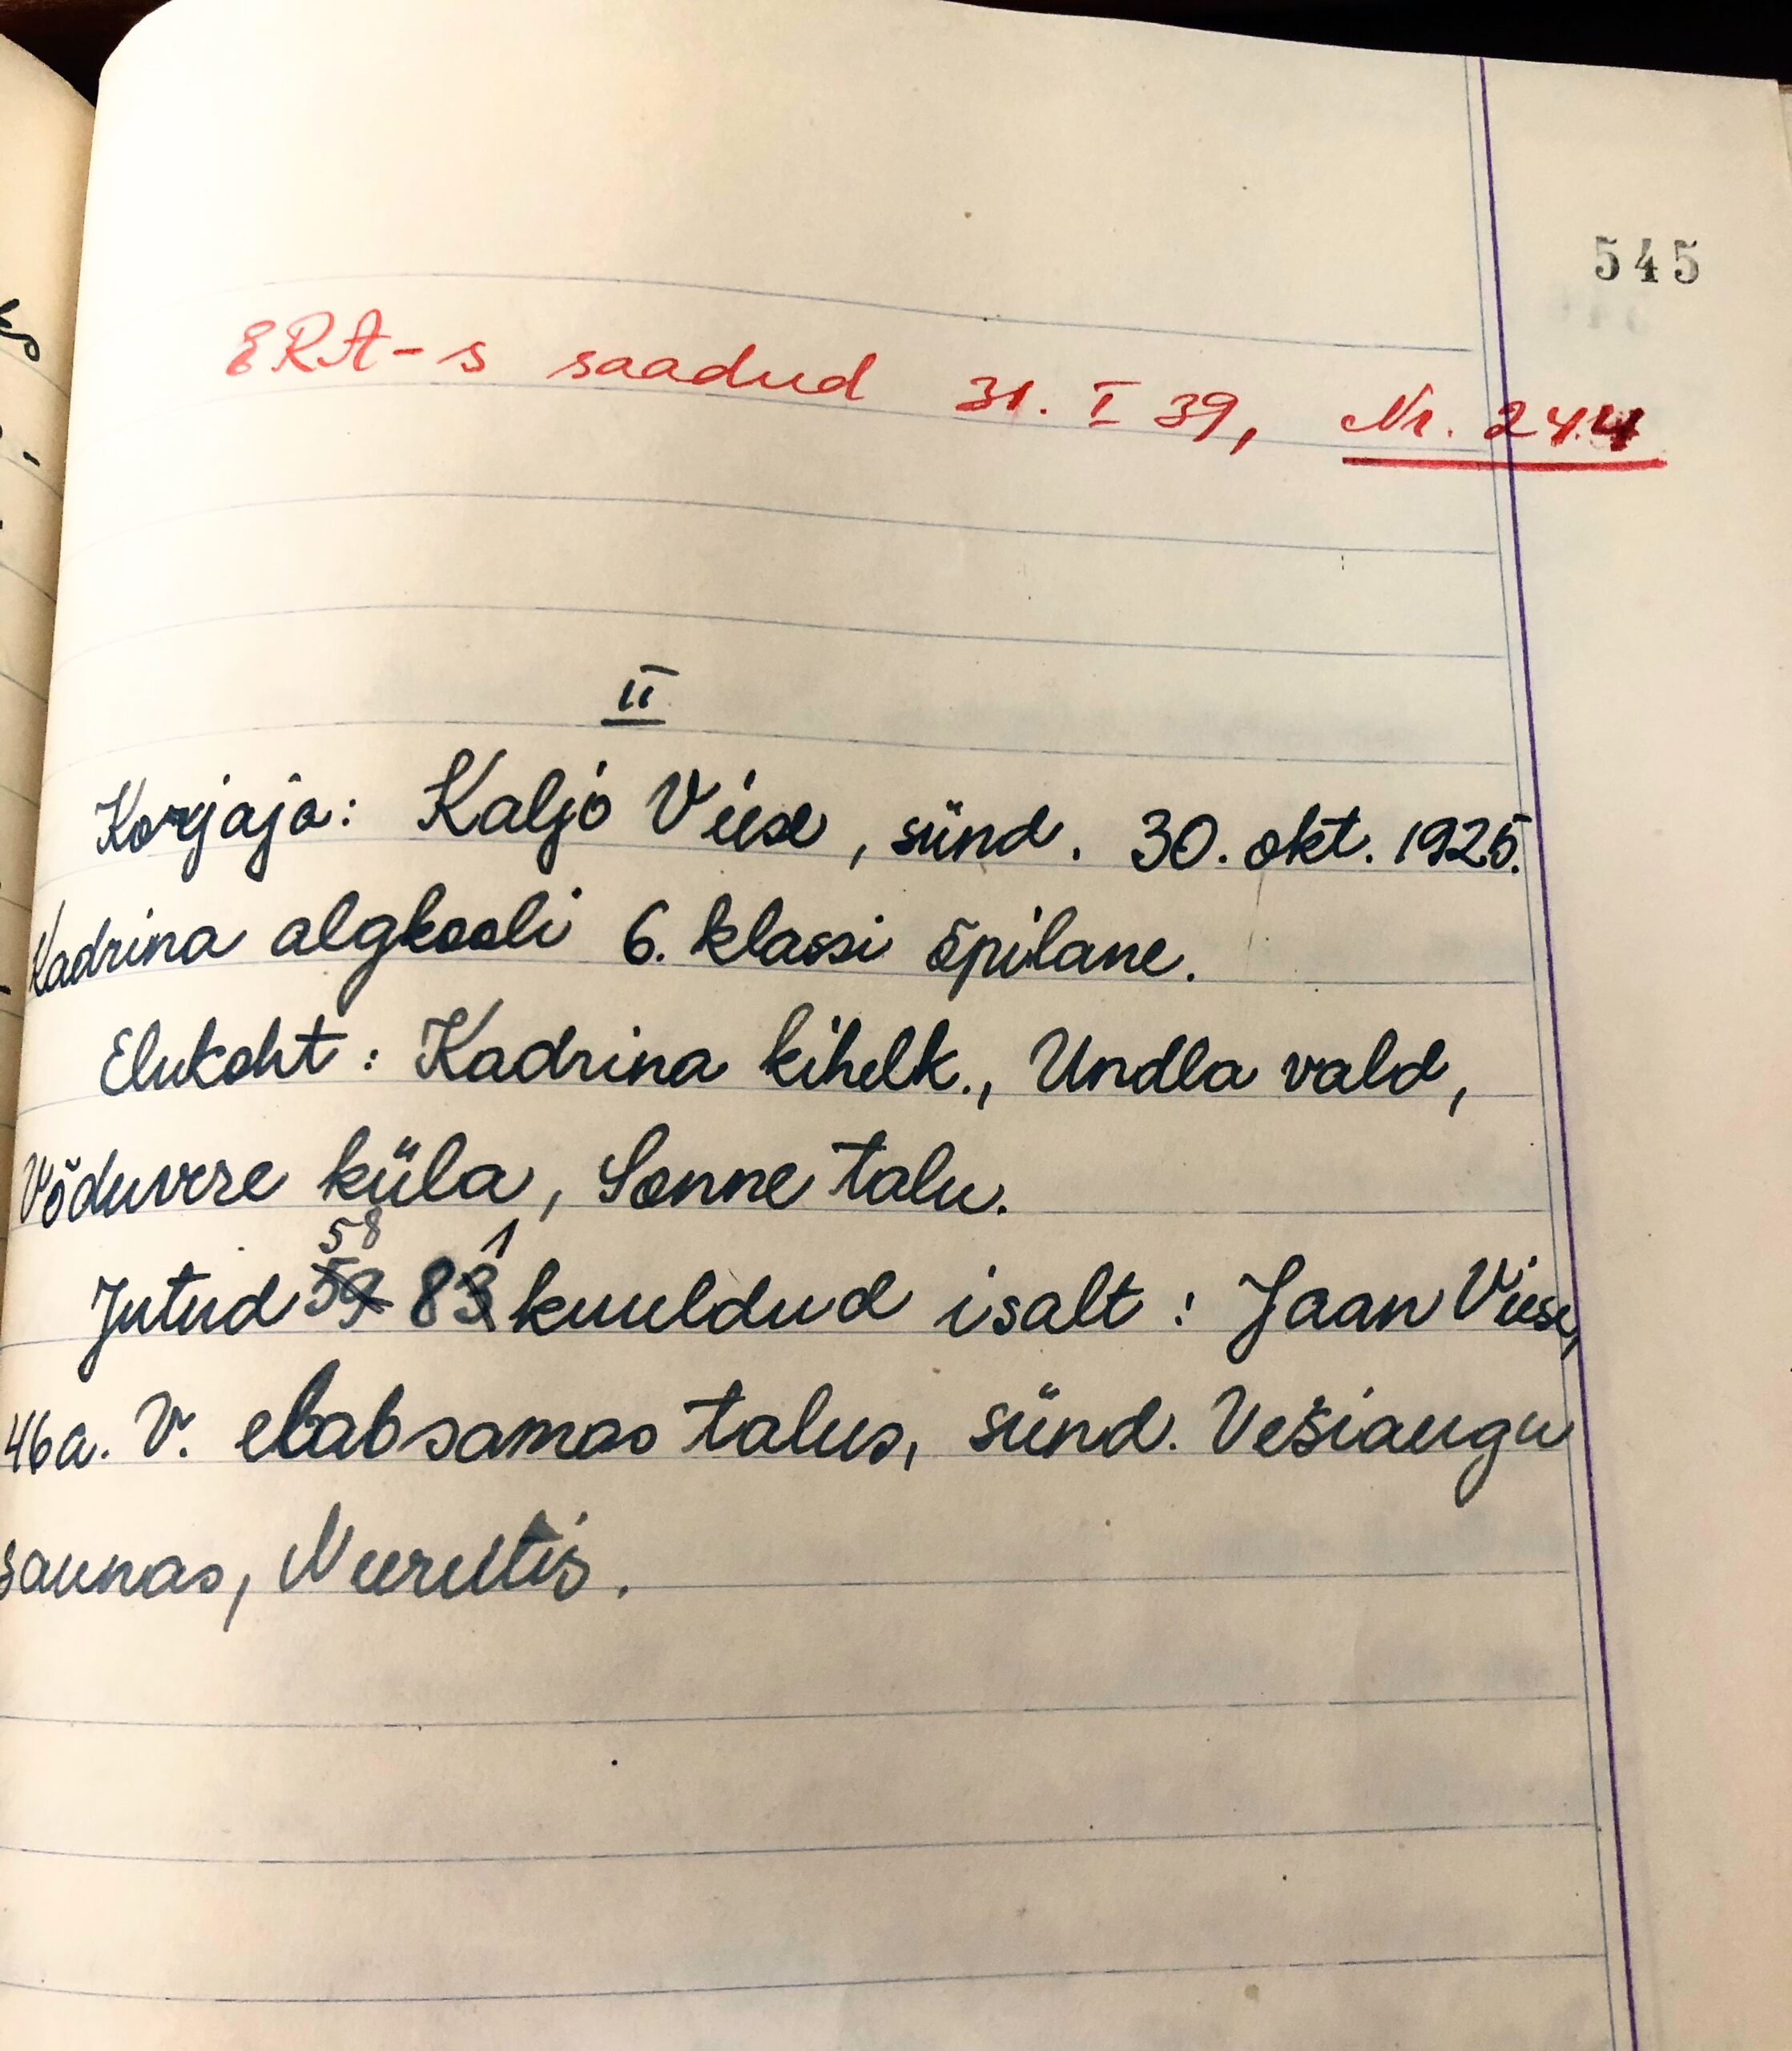 545
ERA-s saadud 31. I 39, Nr. 244
II
Korjaja: Kaljo Viise, sünd. 30. okt. 1925.
Kadrina algkooli 6. klassi õpilane.
Elukoht: Kadrina kihelk., Undla vald,
Võduvere küla, Sonne talu.
58 1
Jutud 59 83 kuuldud isalt: Jaan Viise,
46 a. v. elab samas talus, sünd. Vešiaugu
saunas, Neerutis.